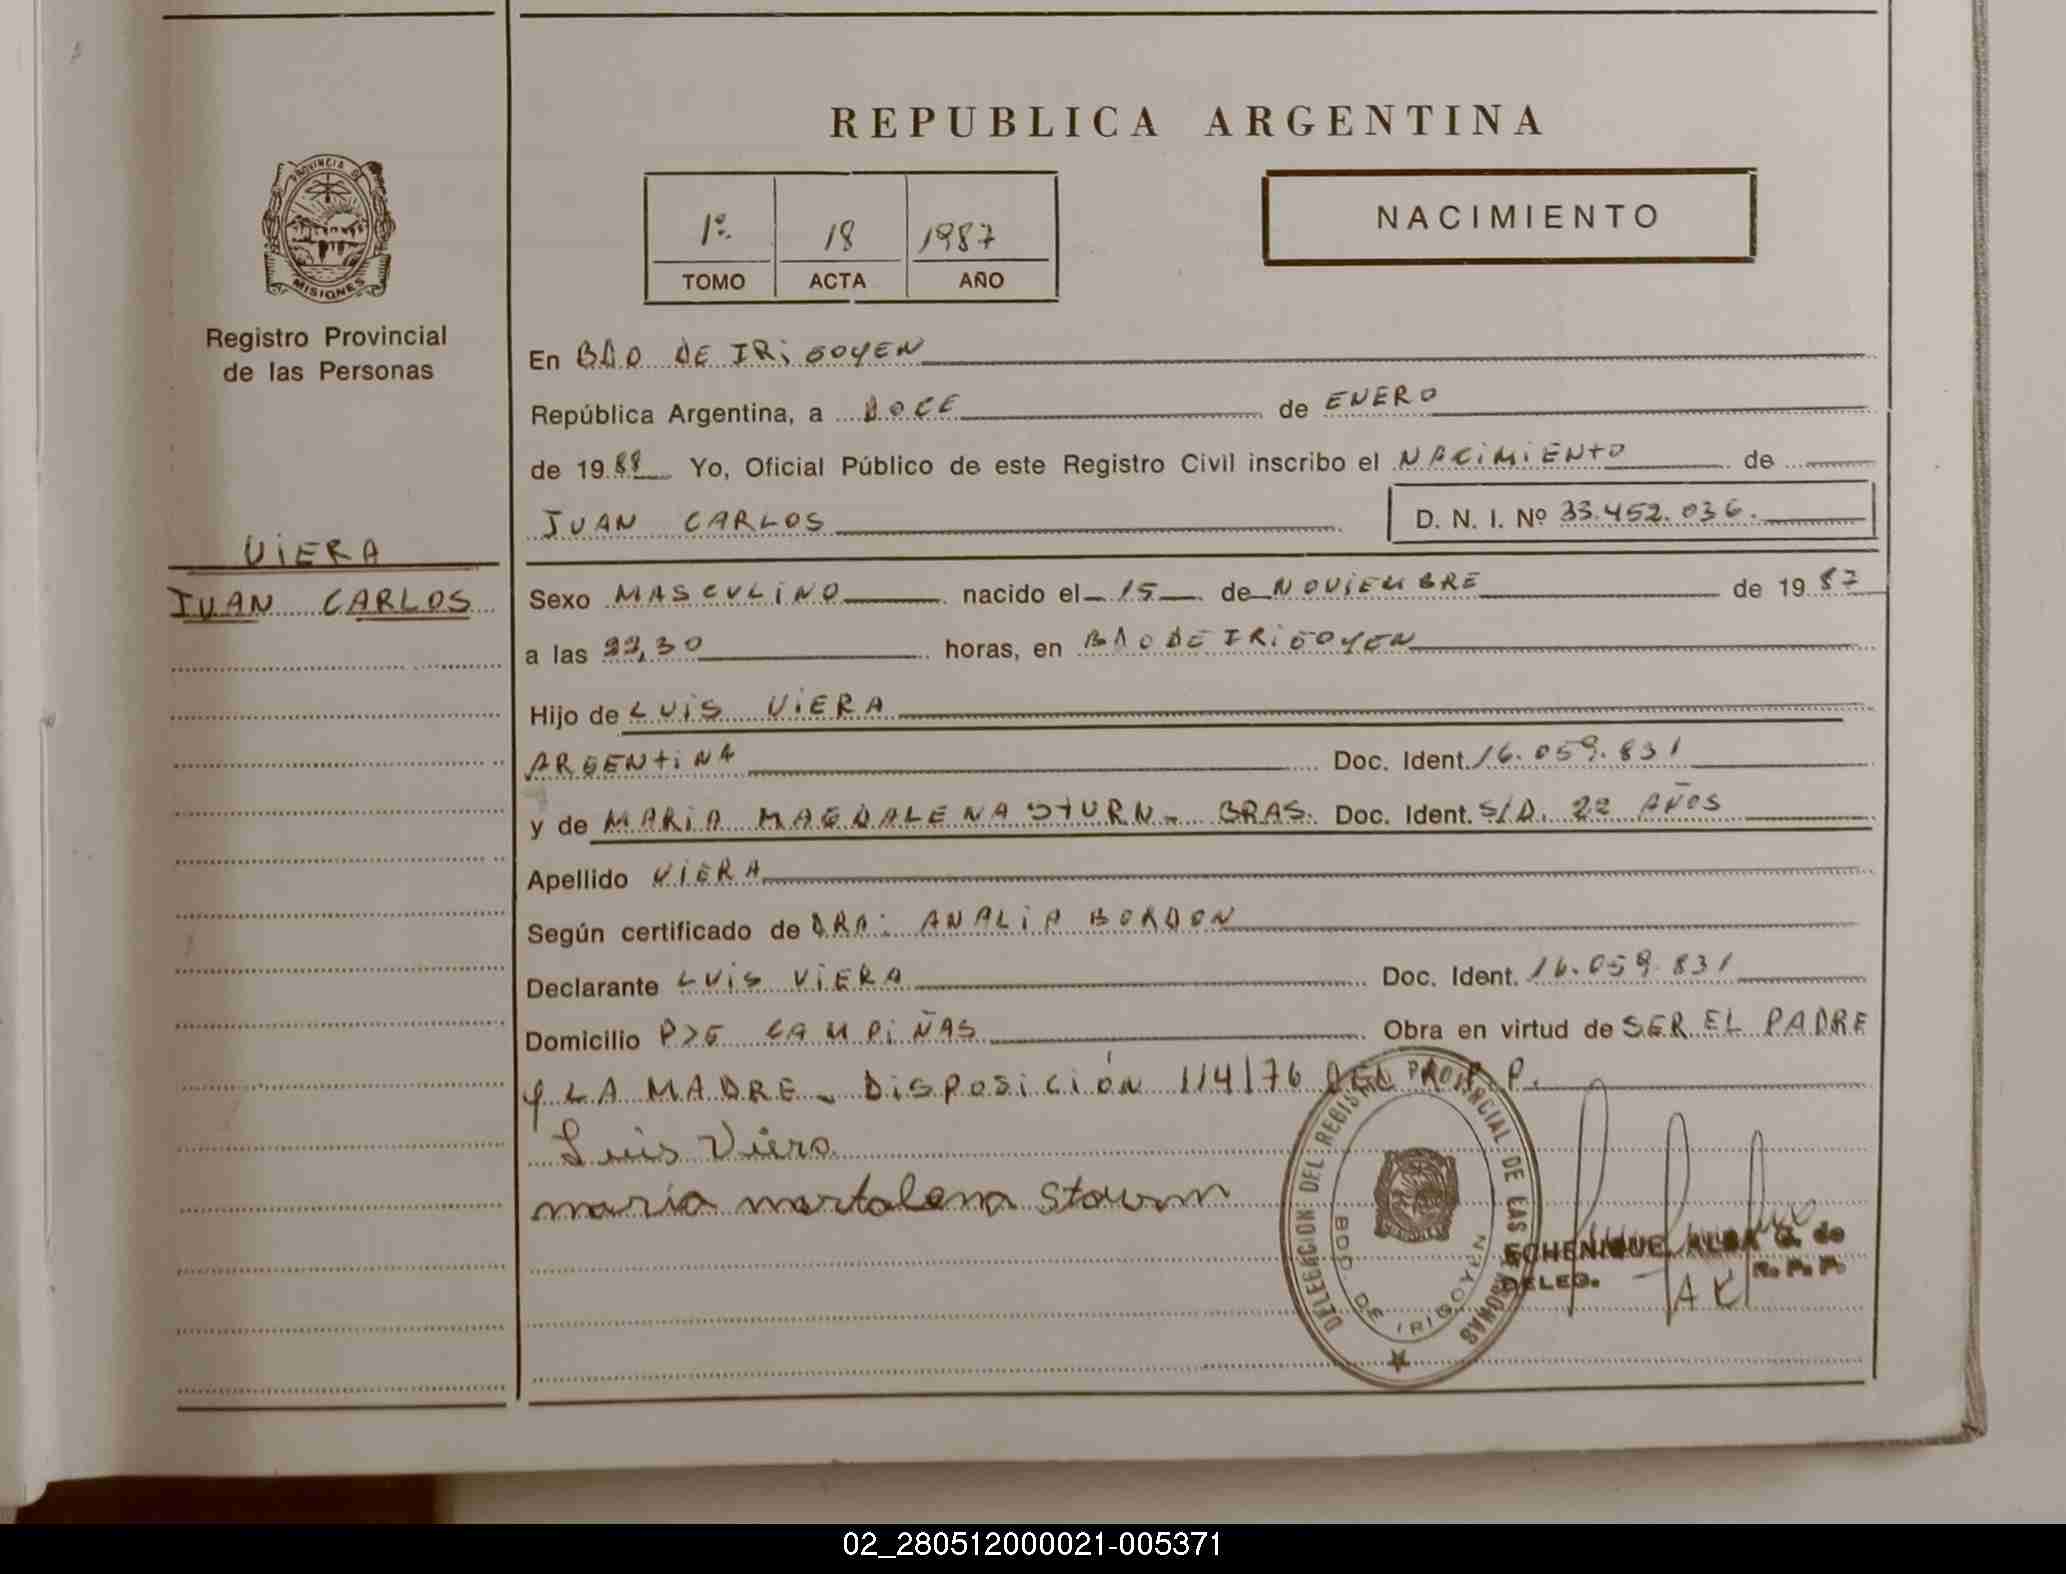 REPUBLICA ARGENTINA
PROVINCIA DE
MISIONES
Registro Provincial
de las Personas
1º 18 1987
TOMO ACTA AÑO
NACIMIENTO
En BDO DE IRIGOYEN
República Argentina, a DOCE de ENERO
de 1988 Yo, Oficial Público de este Registro Civil inscribo el NACIMIENTO de
JUAN CARLOS D. N. I. Nº 33.452.036.
VIERA
JUAN CARLOS
Sexo MASCULINO nacido el 15 de NOVIEMBRE de 1987
a las 22,30 horas, en BDO DE IRIGOYEN
Hijo de LUIS VIERA
ARGENTINA Doc. Ident. 16.059.831
y de MARIA MAGDALENA STURN - BRAS. Doc. Ident. S/D. 22 AÑOS
Apellido VIERA
Según certificado de DRA: ANALIA BORDON
Declarante LUIS VIERA Doc. Ident. 16.059.831
Domicilio PJE CAMPIÑAS Obra en virtud de SER EL PADRE
Y LA MADRE - DISPOSICIÓN 114/76 DEL R.P.P.
Luis Viera
maria martalena Stourn
DELEGACION DEL REGISTRO PROVINCIAL DE LAS PERSONAS
BDO. DE IRIGOYEN
ECHENIQUE, ALBA G. de
DELEG. R. P. P.
02_280512000021-005371